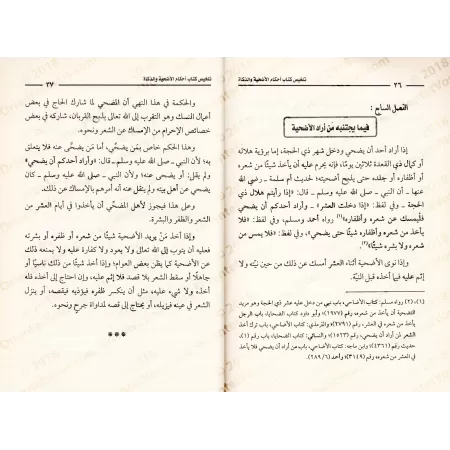 تلخيص كتاب أحكام الأضحية والذكاة
٢٦
الفصل السابع :
فيما يجتنبه من أراد الأضحية
إذا أراد أحد أن يضحي ودخل شهر ذي الحجة، إما برؤية هلاله
أو كمال ذي القعدة ثلاثين يومًا، فإنه يحرم عليه أن يأخذ شيئًا من شعره
أو أظفاره أو جلده حتى يذبح أضحيته؛ لحديث أم سلمة ـ رضي الله
عنها ـ أن النبي ـ صلى الله عليه وسلم ـ قال: «إذا رأيتم هلال ذي
الحجة ـ وفي لفظ: «إذا دخلت العشر» ـ وأراد أحدكم أن يضحي
فليمسك عن شعره وأظفاره»(١) رواه أحمد ومسلم، وفي لفظ: «فلا
يأخذ من شعره وأظفاره شيئًا حتى يضحي»، وفي لفظ: «فلا يمس من
شعره ولا بشره شيئًا»(٢).
وإذا نوى الأضحية أثناء العشر أمسك عن ذلك من حين نيته ولا
إثم عليه فيما أخذه قبل النية.
(١)، (٢) رواه مسلم: كتاب الأضاحي، باب نهي من دخل عليه عشر ذي الحجة وهو مريد
التضحية أن يأخذ من شعره رقم (١٩٧٧)، وأبو داود كتاب الضحايا، باب الرجل
يأخذ من شعره في العشر، رقم (٢٧٩١)، والترمذي: كتاب الأضاحي، باب ترك أخذ
الشعر، رقم (١٥٢٣)، والنسائي: كتاب الضحايا، باب من أراد أن يضحي فلا يأخذ
حديث رقم (٤٣٦١)، وابن ماجه: كتاب الأضاحي، باب من أراد أن يضحي فلا يأخذ
في العشر من شعره وأظفاره رقم (٣١٤٩)، وأحمد (٦/ ٢٨٩).
تلخيص كتاب أحكام الأضحية والذكاة
٢٧
والحكمة في هذا النهي أن المضحي لما شارك الحاج في بعض
أعمال النسك وهو التقرب إلى الله تعالى بذبح القربان، شاركه في بعض
خصائص الإحرام من الإمساك عن الشعر ونحوه.
وهذا الحكم خاص بمن يضحي، أما من يضحى عنه فلا يتعلق
به؛ لأن النبي ـ صلى الله عليه وسلم ـ قال: «وأراد أحدكم أن يضحي»
ولم يقل: أو يضحى عنه؛ ولأن النبي ـ صلى الله عليه وسلم ـ كان
يضحي عن أهل بيته ولم ينقل عنه أنه أمرهم بالإمساك عن ذلك.
وعلى هذا فيجوز لأهل المضحي أن يأخذوا في أيام العشر من
الشعر والظفر والبشرة.
وإذا أخذ من يريد الأضحية شيئًا من شعره أو ظفره أو بشرته
فعليه أن يتوب إلى الله تعالى ولا يعود ولا كفارة عليه ولا يمنعه ذلك
عن الأضحية كما يظن بعض العوام؛ وإذا أخذ شيئًا من ذلك ناسيًا أو
جاهلًا أو سقط الشعر بلا قصد فلا إثم عليه، وإن احتاج إلى أخذه فله
أخذه ولا شيء عليه، مثل أن ينكسر ظفره فيؤذيه فيقصه، أو ينزل
الشعر في عينه فيزيله، أو يحتاج إلى قصه لمداواة جرح ونحوه.
***